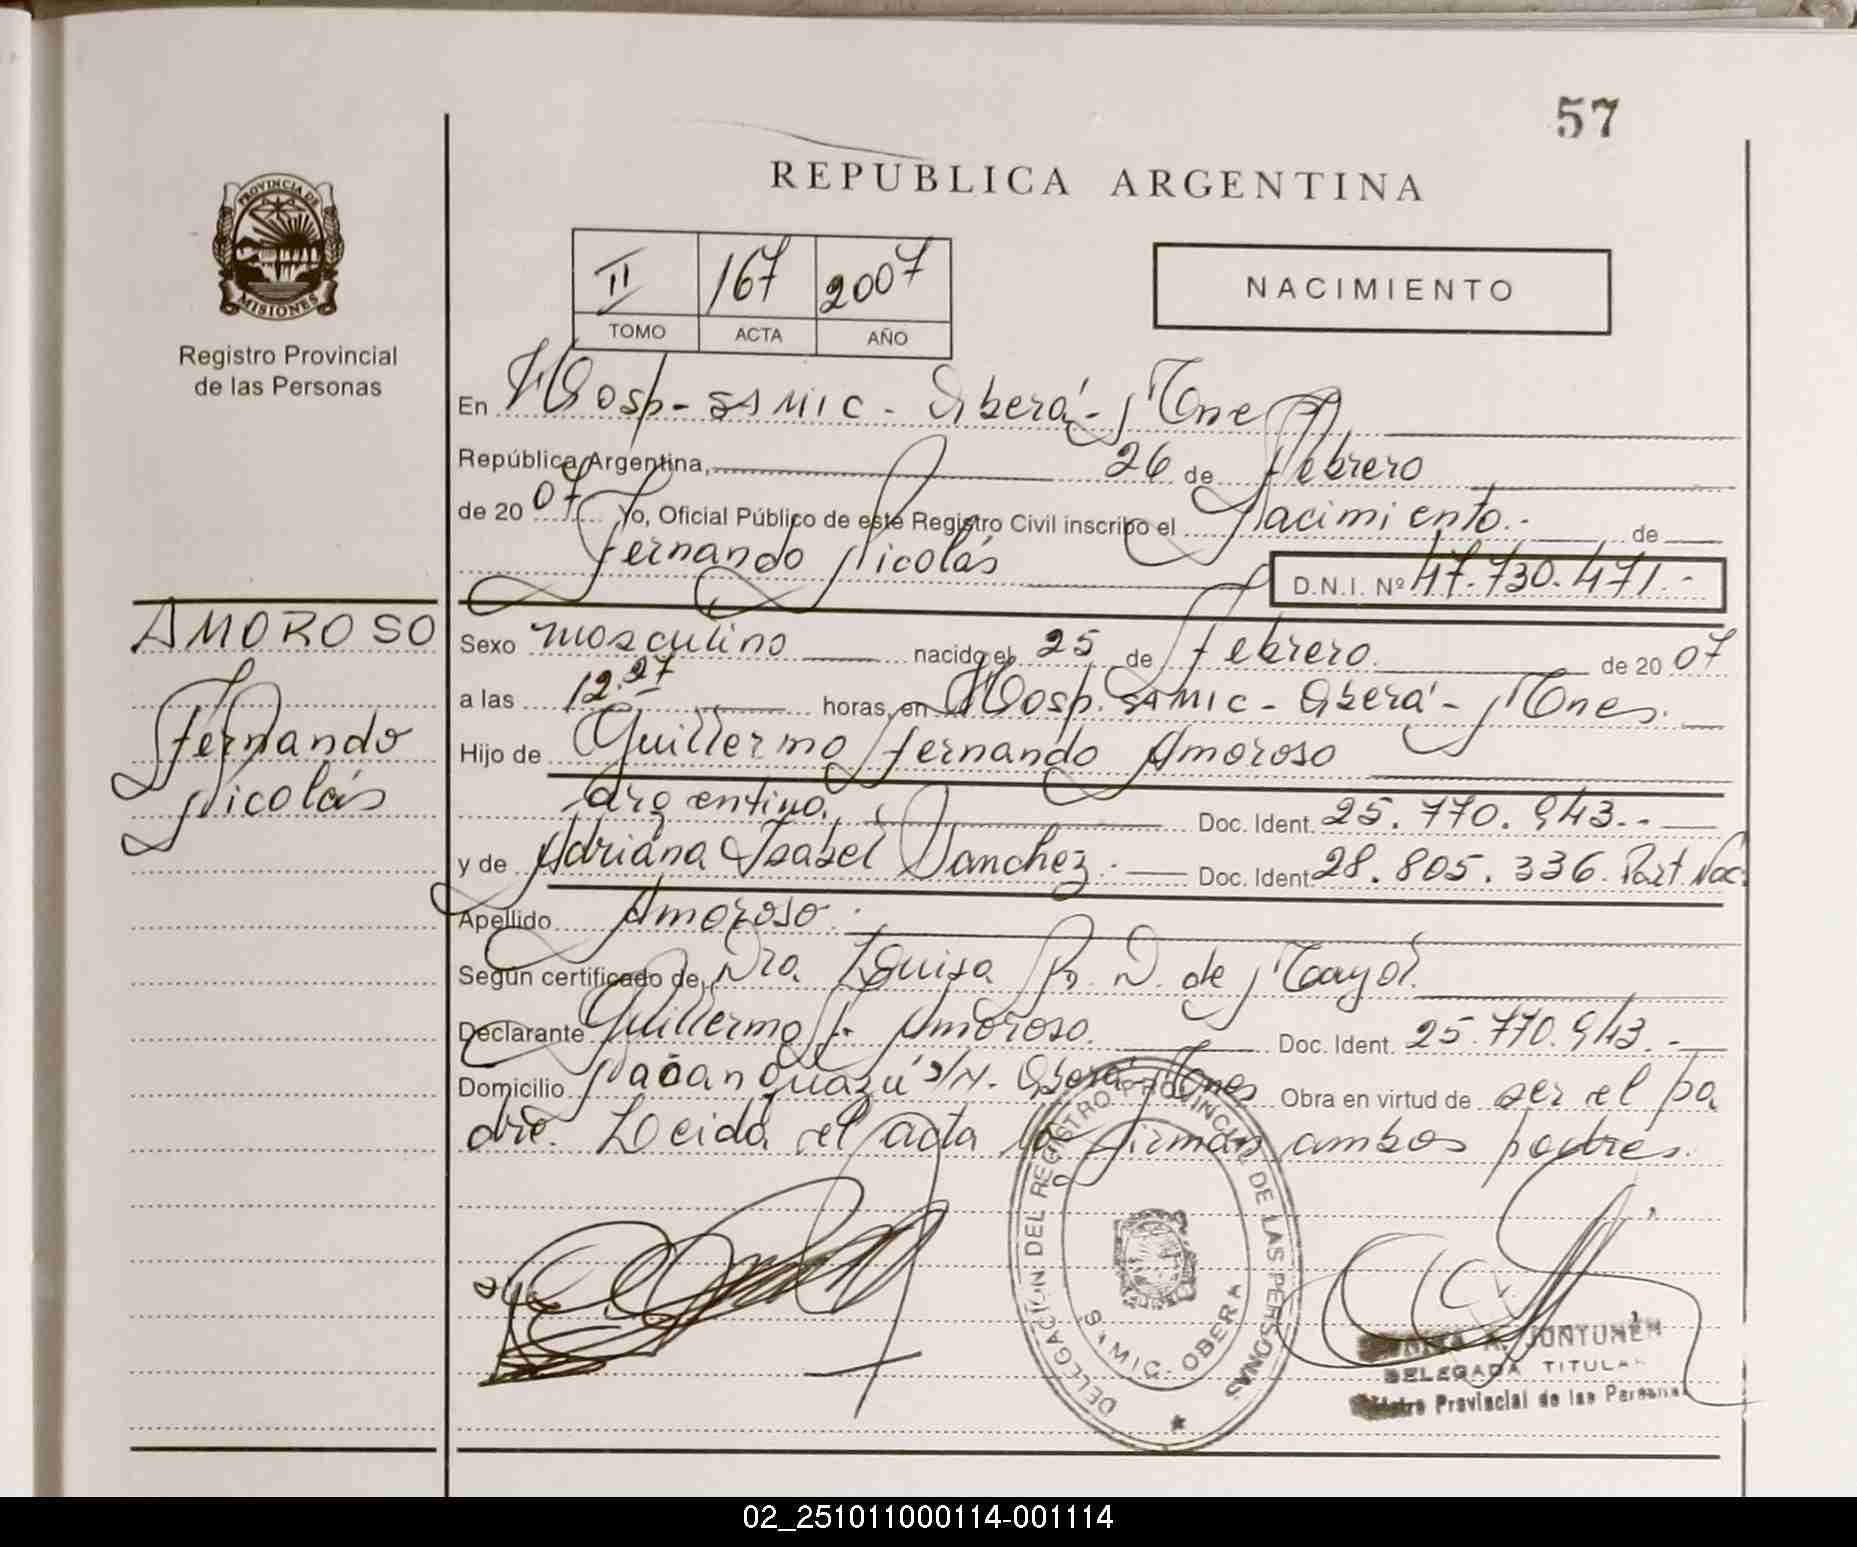 57
REPUBLICA ARGENTINA
PROVINCIA DE
MISIONES
Registro Provincial
de las Personas
II 167 2007
TOMO ACTA AÑO
NACIMIENTO
En Hosp- SAMIC - Oberá - Mnes
República Argentina, 26 de Febrero
de 20 07 Yo, Oficial Público de este Registro Civil inscribo el Nacimiento.- de
Fernando Nicolás D.N.I. Nº 47.730.471.-
AMOROSO
Fernando
Nicolás
Sexo masculino nacido el 25 de Febrero de 20 07
a las 12.27 horas, en Hosp. SAMIC - Oberá - Mnes.
Hijo de Guillermo Fernando Amoroso
argentino. Doc. Ident. 25.770.943.-
y de Adriana Isabel Sanchez. Doc. Ident. 28.805.336. Part. Nac.
Apellido Amoroso.
Según certificado de Dra. Luisa R. D. de Mayol.
Declarante Guillermo F. Amoroso. Doc. Ident. 25.770.943.-
Domicilio s/N. Oberá - Mnes Obra en virtud de ser el pa
dre. Leída el acta la firman ambos padres.
DELEGACION DEL REGISTRO PROVINCIAL DE LAS PERSONAS
SAMIC - OBERA
A. JUNTUNEN
DELEGADA TITULAR
Registro Provincial de las Personas
02_251011000114-001114